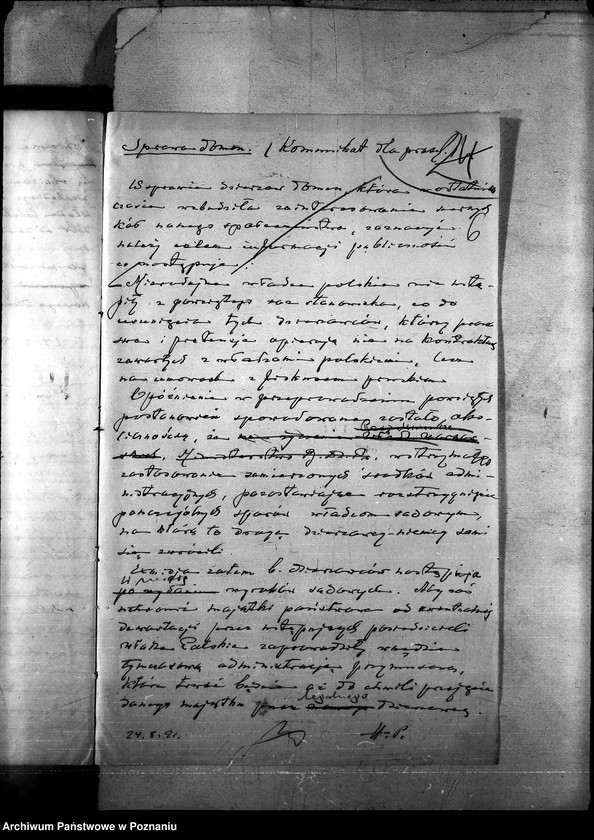 Sprawa domen. / Komunikat dla prasy.
W sprawie dzierżaw domen, która w ostatnim
czasie wzbudziła zainteresowanie szerszych
kół naszego społeczeństwa, zaznaczyć
należy celem informacji publiczności
co następuje:
Miarodajne władze polskie nie ustą-
piły z powziętego raz stanowiska, co do
usunięcia tych dzierżawców, którzy prawa
swe i pretensje opierają nie na kontraktach
zawartych z władzami polskiemi, lecz
na umowach z fiskusem pruskim
Opóźnienie w przeprowadzeniu powyższych
postanowień spowodowane zostało oko-
licznością, że
wstrzymało
zastosowanie zamierzonych środków admi-
nistracyjnych, pozostawiając rozstrzygnięcie
poszczególnych sporów władzom sądowym,
na którą to drogę dzierżawcy-niemcy sami
się zwrócili.
Eksmisja zatem b. dzierżawców nastąpi
po wydaniu wyroków sądowych. Aby zaś
uchronić majątki państwowe od ewentualnej
dewastacji przez ustępujących posiedzicieli
władze Polskie zaprowadziły wszędzie
tymczasową administrację przymusową,
która trwać będzie aż do chwili przejęcia
danego majątku przez legalnego dzierżawcę.
24.8.21. H.P.
Archiwum Państwowe w Poznaniu